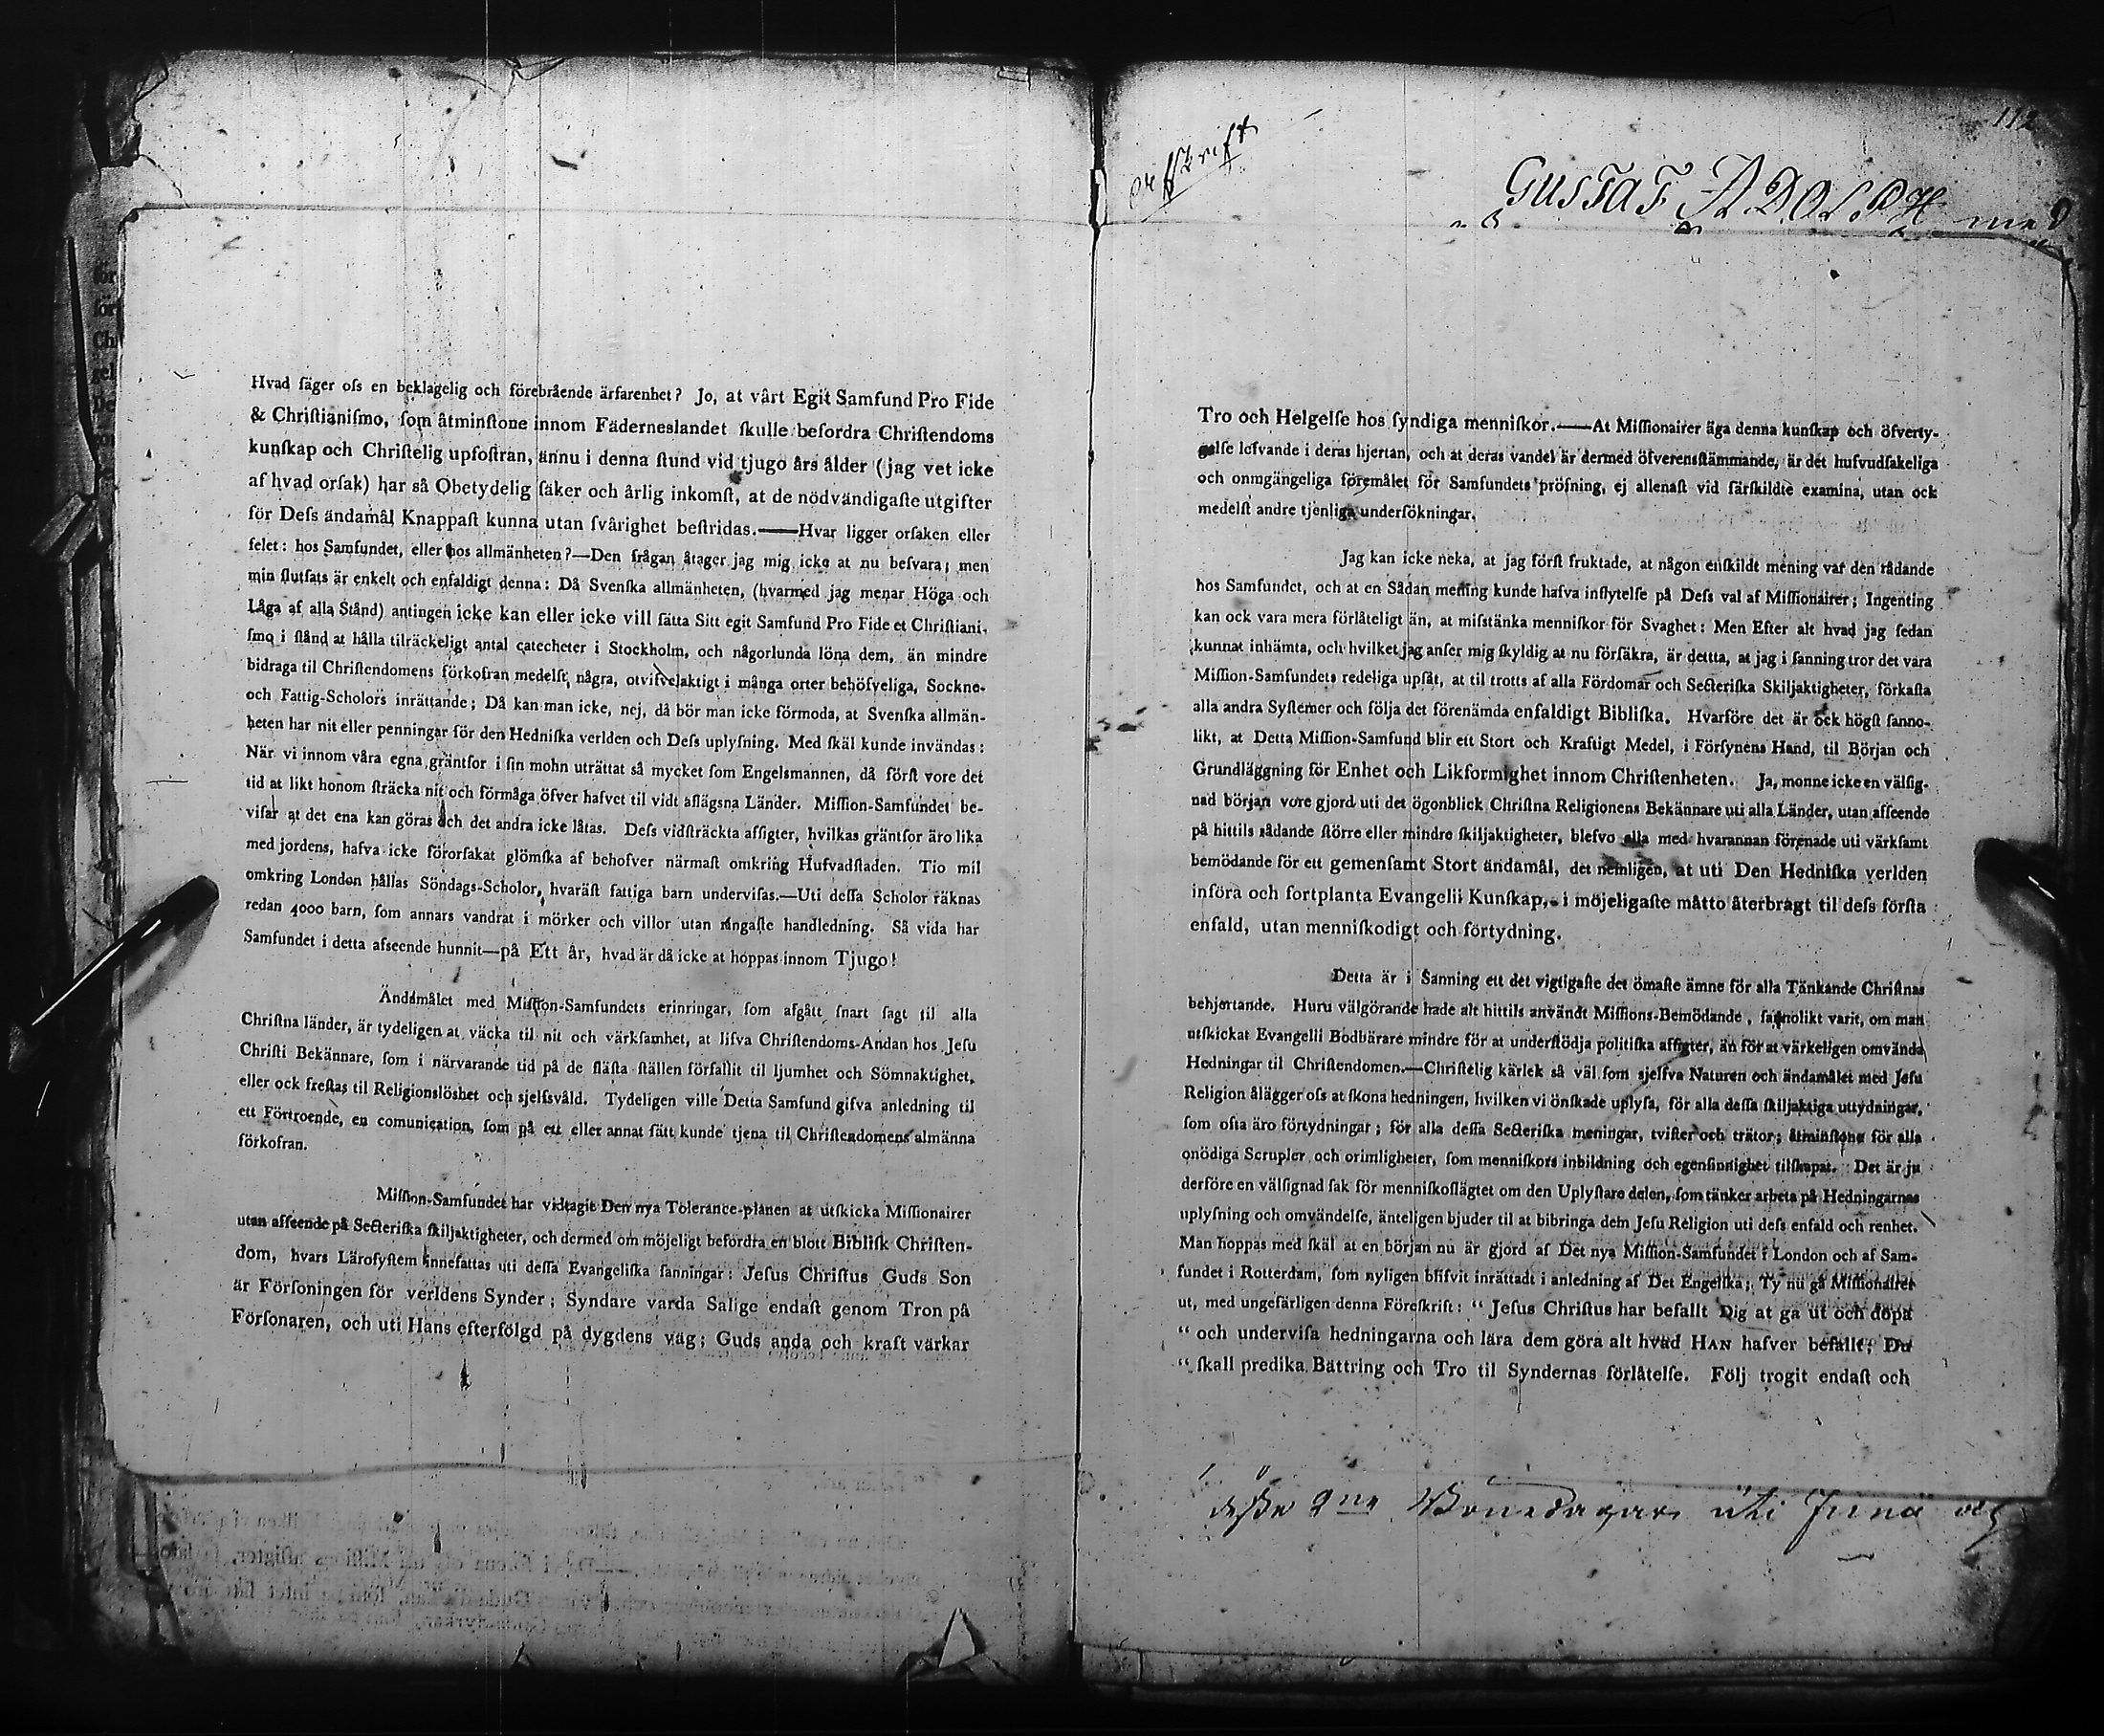 Hvad ſäger oſs en beklagelig och förebrående ärfarenhet? Jo, at vårt Egit Samfund Pro Fide
& Chriſtianiſmo, ſom åtminſtone innom Fäderneslandet ſkulle befordra Chriſtendoms
kunſkap och Chriſtelig upfoſtran, ännu i denna ſtund vid tjugo års ålder (jag vet icke
af hvad orſak) har så Obetydelig ſäker och årlig inkomſt, at de nödvändigaſte utgifter
för Deſs ändamål Knappaſt kunna utan ſvårighet beſtridas.——Hvar ligger orſaken eller
felet: hos Samfundet, eller hos allmänheten?—Den frågan åtager jag mig icke at nu beſvara; men
min ſlutſats är enkelt och enfaldigt denna: Då Svenſka allmänheten, (hvarmed jag menar Höga och
Låga af alla Stånd) antingen icke kan eller icke vill ſätta Sitt egit Samfund Pro Fide et Chriſtiani-
ſmo i ſtånd at hålla tilräckeligt antal catecheter i Stockholm, och någorlunda löna dem, än mindre
bidraga til Chriſtendomens förkofran medelſt några, otvifvelaktigt i många orter behöfveliga, Sockne-
och Fattig-Scholors inrättande; Då kan man icke, nej, då bör man icke förmoda, at Svenſka allmän-
heten har nit eller penningar för den Hedniſka verlden och Deſs uplyſning. Med ſkäl kunde invändas:
När vi innom våra egna gräntſor i ſin mohn uträttat så mycket ſom Engelsmannen, då förſt vore det
tid at likt honom ſträcka nit och förmåga öfver hafvet til vidt aflägsna Länder. Miſſion-Samfundet be-
viſar at det ena kan göras och det andra icke låtas. Deſs vidſträckta afſigter, hvilkas gräntſor äro lika
med jordens, hafva icke förorſakat glömſka af behofver närmaſt omkring Hufvadſtaden. Tio mil
omkring London hållas Söndags-Scholor, hvaräſt fattiga barn underviſas.—Uti deſſa Scholor räknas
redan 4000 barn, ſom annars vandrat i mörker och villor utan ringaſte handledning. Så vida har
Samfundet i detta afseende hunnit—på Ett år, hvad är då icke at hoppas innom Tjugo!
Ändamålet med Miſſion-Samfundets erinringar, ſom afgått ſnart ſagt til alla
Chriſtna länder, är tydeligen at väcka til nit och värkſamhet, at lifva Chriſtendoms-Andan hos Jeſu
Chriſti Bekännare, ſom i närvarande tid på de fläſta ſtällen förfallit til ljumhet och Sömnaktighet,
eller ock freſtas til Religionslöshet och sjelfsvåld. Tydeligen ville Detta Samfund gifva anledning til
ett Förtroende, en comunication, ſom på ett eller annat ſätt kunde tjena til Chriſtendomens almänna
förkofran.
Miſſion-Samfundet har vidtagit Den nya Tolerance-planen at utſkicka Miſſionairer
utan afſeende på Secteriſka ſkiljaktigheter, och dermed om möjeligt befordra en blott Bibliſk Chriſten-
dom, hvars Läroſyſtem innefattas uti deſſa Evangeliſka ſanningar: Jeſus Chriſtus Guds Son
är Förſoningen för verldens Synder; Syndare varda Salige endaſt genom Tron på
Förſonaren, och uti Hans efterfölgd på dygdens väg; Guds anda och kraft värkar
112
Afſkrift
GUSTAF ADOLPH med
Tro och Helgelſe hos ſyndiga menniſkor.——At Miſſionairer äga denna kunſkap och öfverty-
gelſe lefvande i deras hjertan, och at deras vandel är dermed öfverensſtämmande, är det hufvudſakeliga
och omgängeliga föremålet för Samfundets pröfning, ej allenaſt vid färſkildte examina, utan ock
medelſt andre tjenliga underſökningar.
Jag kan icke neka, at jag förſt fruktade, at någon enſkildt mening var den rådande
hos Samfundet, och at en Sådan mening kunde hafva inflytelſe på Deſs val af Miſſionairer; Ingenting
kan ock vara mera förlåteligt än, at miſstänka menniſkor för Svaghet: Men Efter alt hvad jag ſedan
kunnat inhämta, och hvilket jag anſer mig ſkyldig at nu förſäkra, är dettta, at jag i ſanning tror det vara
Miſſion-Samfundets redeliga upſåt, at til trotts af alla Fördomar och Secteriſka Skiljaktigheter, förkaſta
alla andra Syſtemer och följa det förenämda enfaldigt Bibliſka. Hvarföre det är ock högſt ſanno-
likt, at Detta Miſſion-Samfund blir ett Stort och Kraftigt Medel, i Förſynens Hand, til Början och
Grundläggning för Enhet och Likformighet innom Chriſtenheten. Ja, monne icke en välſig-
nad början vore gjord uti det ögonblick Chriſtna Religionens Bekännare uti alla Länder, utan afſeende
på hittils rådande ſtörre eller mindre ſkiljaktigheter, blefvo alla med hvarannan förenade uti värkſamt
bemödande för ett gemenſamt Stort ändamål, det nemligen, at uti Den Hedniſka verlden
införa och fortplanta Evangelii Kunſkap, i möjeligaſte måtto återbragt til deſs förſta
enfald, utan menniſkodigt och förtydning.
Detta är i Sanning ett det vigtigaſte det ömaſte ämne för alla Tänkande Chriſtnas
behjertande. Huru välgörande hade alt hittils användt Miſſions-Bemödande, ſannolikt varit, om man
utſkickat Evangelli Bodbärare mindre för at underſtödja politiſka afſigter, än för at värkeligen omvända
Hedningar til Chriſtendomen.—Chriſtelig kärlek så väl ſom sjelfva Naturen och ändamålet med Jeſu
Religion ålägger oſs at ſkona hedningen, hvilken vi önſkade uplyſa, för alla deſſa ſkiljaktiga uttydningar,
ſom ofta äro förtydningar; för alla deſſa Secteriſka meningar, tviſter och trätor; åtminſtone för alla
onödiga Scrupler och orimligheter, ſom menniſkors inbildning och egenſinnighet tilſkapat. Det är ju
derföre en välſignad ſak för menniſkoſlägtet om den Uplyſtare delen, ſom tänker arbeta på Hedningarnas
uplyſning och omvändelſe, änteligen bjuder til at bibringa dem Jeſu Religion uti deſs enfald och renhet.
Man hoppas med ſkäl at en början nu är gjord af Det nya Miſſion-Samfundet i London och af Sam-
fundet i Rotterdam, ſom nyligen blifvit inrättadt i anledning af Det Engelſka; Ty nu gå Miſſionairer
ut, med ungefärligen denna Föreſkrift: “ Jeſus Chriſtus har befallt Dig at gå ut och döpa
“ och underviſa hedningarna och lära dem göra alt hvad HAN hafver befallt; Du
“ ſkall predika Bättring och Tro til Syndernas förlåtelſe. Följ trogit endaſt och
deſse 2ne Bönedagar uti Junii och